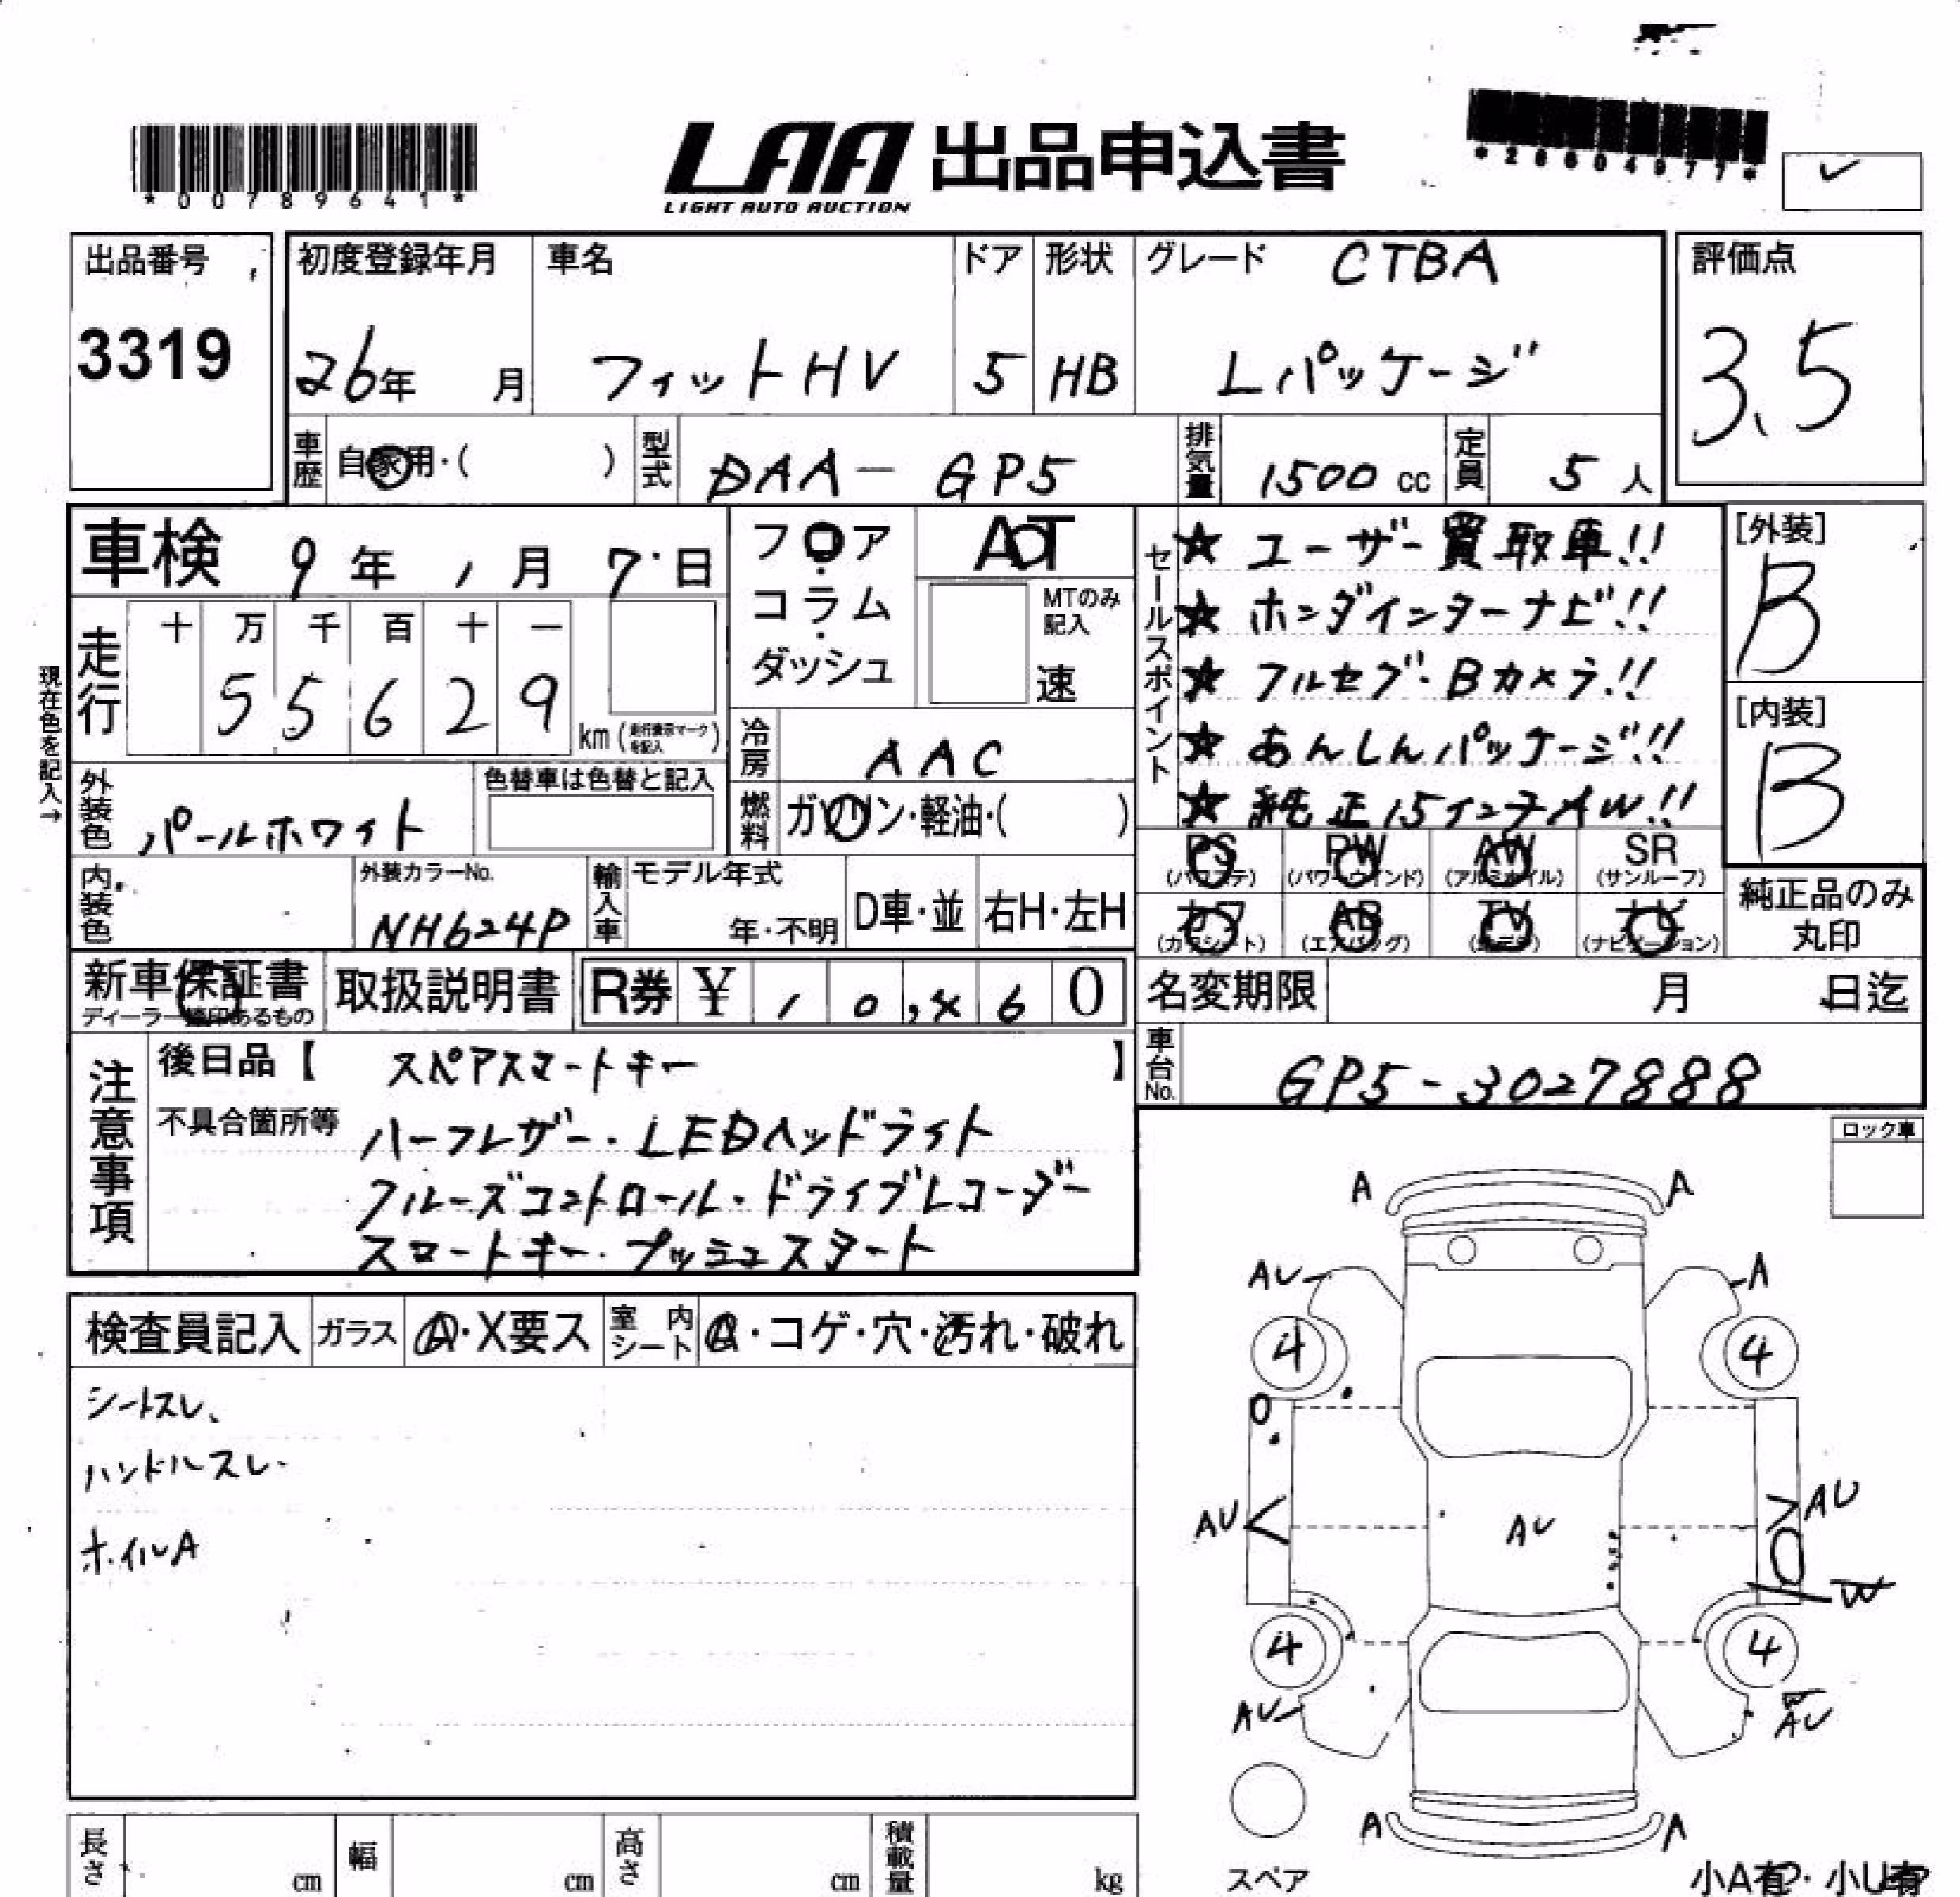 *00789641*
LAA 出品申込書
LIGHT AUTO AUCTION
*28604977*
出品番号
3319
初度登録年月
26年 月
車名
フィットHV
ドア
5
形状
HB
グレード CTBA
Lパッケージ
評価点
3.5
車歴 自家用・( )
型式 DAA-GP5
排気量 1500 cc
定員 5 人
車検 9年 1月 7日
フロア・コラム・ダッシュ
AT
MTのみ記入
速
セールスポイント
★ ユーザー買取車!!
★ ホンダインターナビ!!
★ フルセグ・Bカメラ!!
★ あんしんパッケージ!!
★ 純正15インチAW!!
[外装]
B
[内装]
B
現在色を記入→
走行
十 万 千 百 十 一
5 5 6 2 9
km (走行表示マークを記入)
冷房 AAC
外装色 パールホワイト
色替車は色替と記入
燃料 ガソリン・軽油・( )
PS (パワステ)
PW (パワーウインド)
AW (アルミホイル)
SR (サンルーフ)
カワ (カワシート)
AB (エアバッグ)
TV
ナビ (ナビゲーション)
純正品のみ丸印
内装色
外装カラーNo.
NH624P
輸入車
モデル年式
年・不明
D車・並
右H・左H
新車保証書
取扱説明書
R券 ¥ 1 0, 6 0
名変期限 月 日迄
車台No. GP5-3027888
注意事項
後日品【 スペアスマートキー 】
不具合箇所等
ハーフレザー・LEDヘッドライト
クルーズコントロール・ドライブレコーダー
スマートキー・プッシュスタート
ロック車
検査員記入
ガラス A・X要ス
室内シート A・コゲ・穴・汚れ・破れ
シートスレ、
ハンドルスレ・
ホイルA
A A
AU A
4 4
AU AU AU
W
4 4
AU W AU
A A
スペア
小A有・小U有
長さ cm
幅 cm
高さ cm
積載量 kg